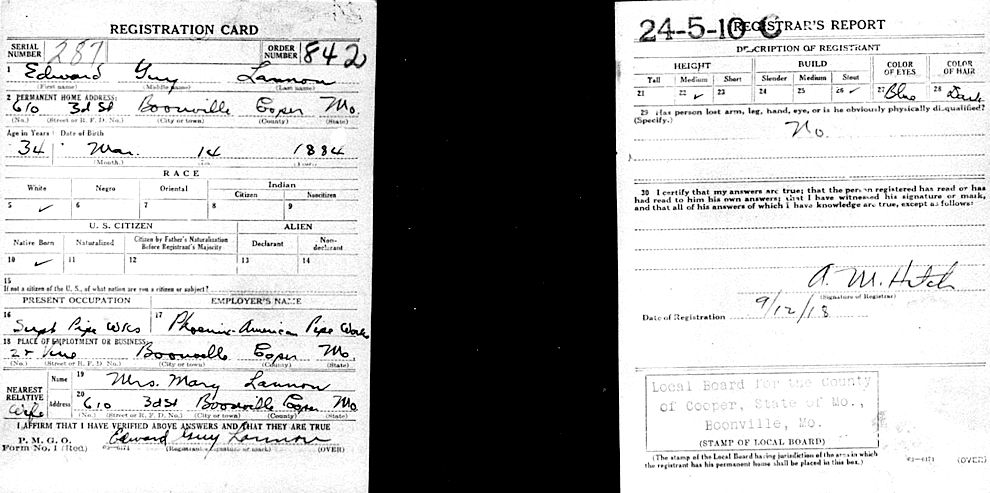 REGISTRATION CARD
SERIAL NUMBER 287 ORDER NUMBER 842
1 Edward Guy Lannon
(First name) (Middle name) (Last name)
2 PERMANENT HOME ADDRESS:
610 3rd St Boonville Coper Mo.
(No.) (Street or R. F. D. No.) (City or town) (County) (State)
Age in Years Date of Birth
34 Mar. 14 1884
(Month.) (Year.)
RACE
White Negro Oriental Indian
Citizen Noncitizen
5 ✓ 6 7 8 9
U. S. CITIZEN ALIEN
Native Born Naturalized Citizen by Father's Naturalization Before Registrant's Majority Declarant Non-declarant
10 ✓ 11 12 13 14
15
If not a citizen of the U. S., of what nation are you a citizen or subject?
PRESENT OCCUPATION EMPLOYER'S NAME
16 Supt Pipe Wks 17 Phoenix-American Pipe Works
18 PLACE OF EMPLOYMENT OR BUSINESS:
2 & Vine Boonville Coper Mo.
(No.) (Street or R. F. D. No.) (City or town) (County) (State)
NEAREST RELATIVE Name 19 Mrs. Mary Lannon
Wife Address 20 610 3d St Boonville Coper Mo
(No.) (Street or R. F. D. No.) (City or town) (County) (State)
I AFFIRM THAT I HAVE VERIFIED ABOVE ANSWERS AND THAT THEY ARE TRUE
P. M. G. O.
Form No. 1 (Red) Edward Guy Lannon
(Registrant's signature or mark) (OVER)
24-5-10 C REGISTRAR'S REPORT
DESCRIPTION OF REGISTRANT
HEIGHT BUILD COLOR OF EYES COLOR OF HAIR
Tall Medium Short Slender Medium Stout
21 22 ✓ 23 24 25 26 ✓ 27 Blue 28 Dark
29 Has person lost arm, leg, hand, eye, or is he obviously physically disqualified?
(Specify.) No.
30 I certify that my answers are true; that the person registered has read or has
had read to him his own answers; that I have witnessed his signature or mark,
and that all of his answers of which I have knowledge are true, except as follows:
A. M. Hitch
(Signature of Registrar)
Date of Registration 9/12/18
Local Board for the County
of Cooper, State of Mo.,
Boonville, Mo.
(STAMP OF LOCAL BOARD)
(The stamp of the Local Board having jurisdiction of the area in which
the registrant has his permanent home shall be placed in this box.)
(OVER)